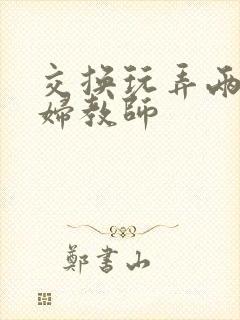 交换玩弄兩
婦教師
鄭書山